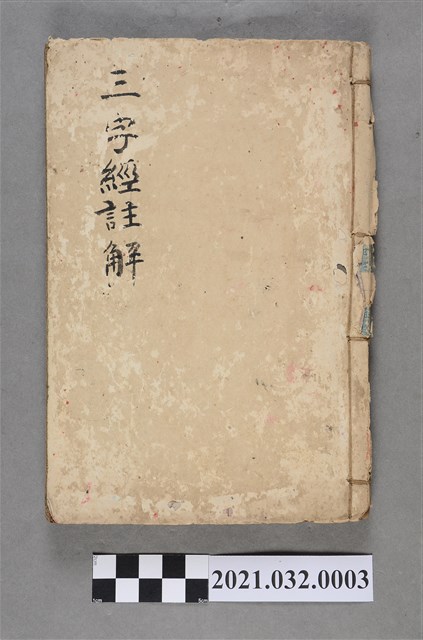 三字經註解
2021.032.0003